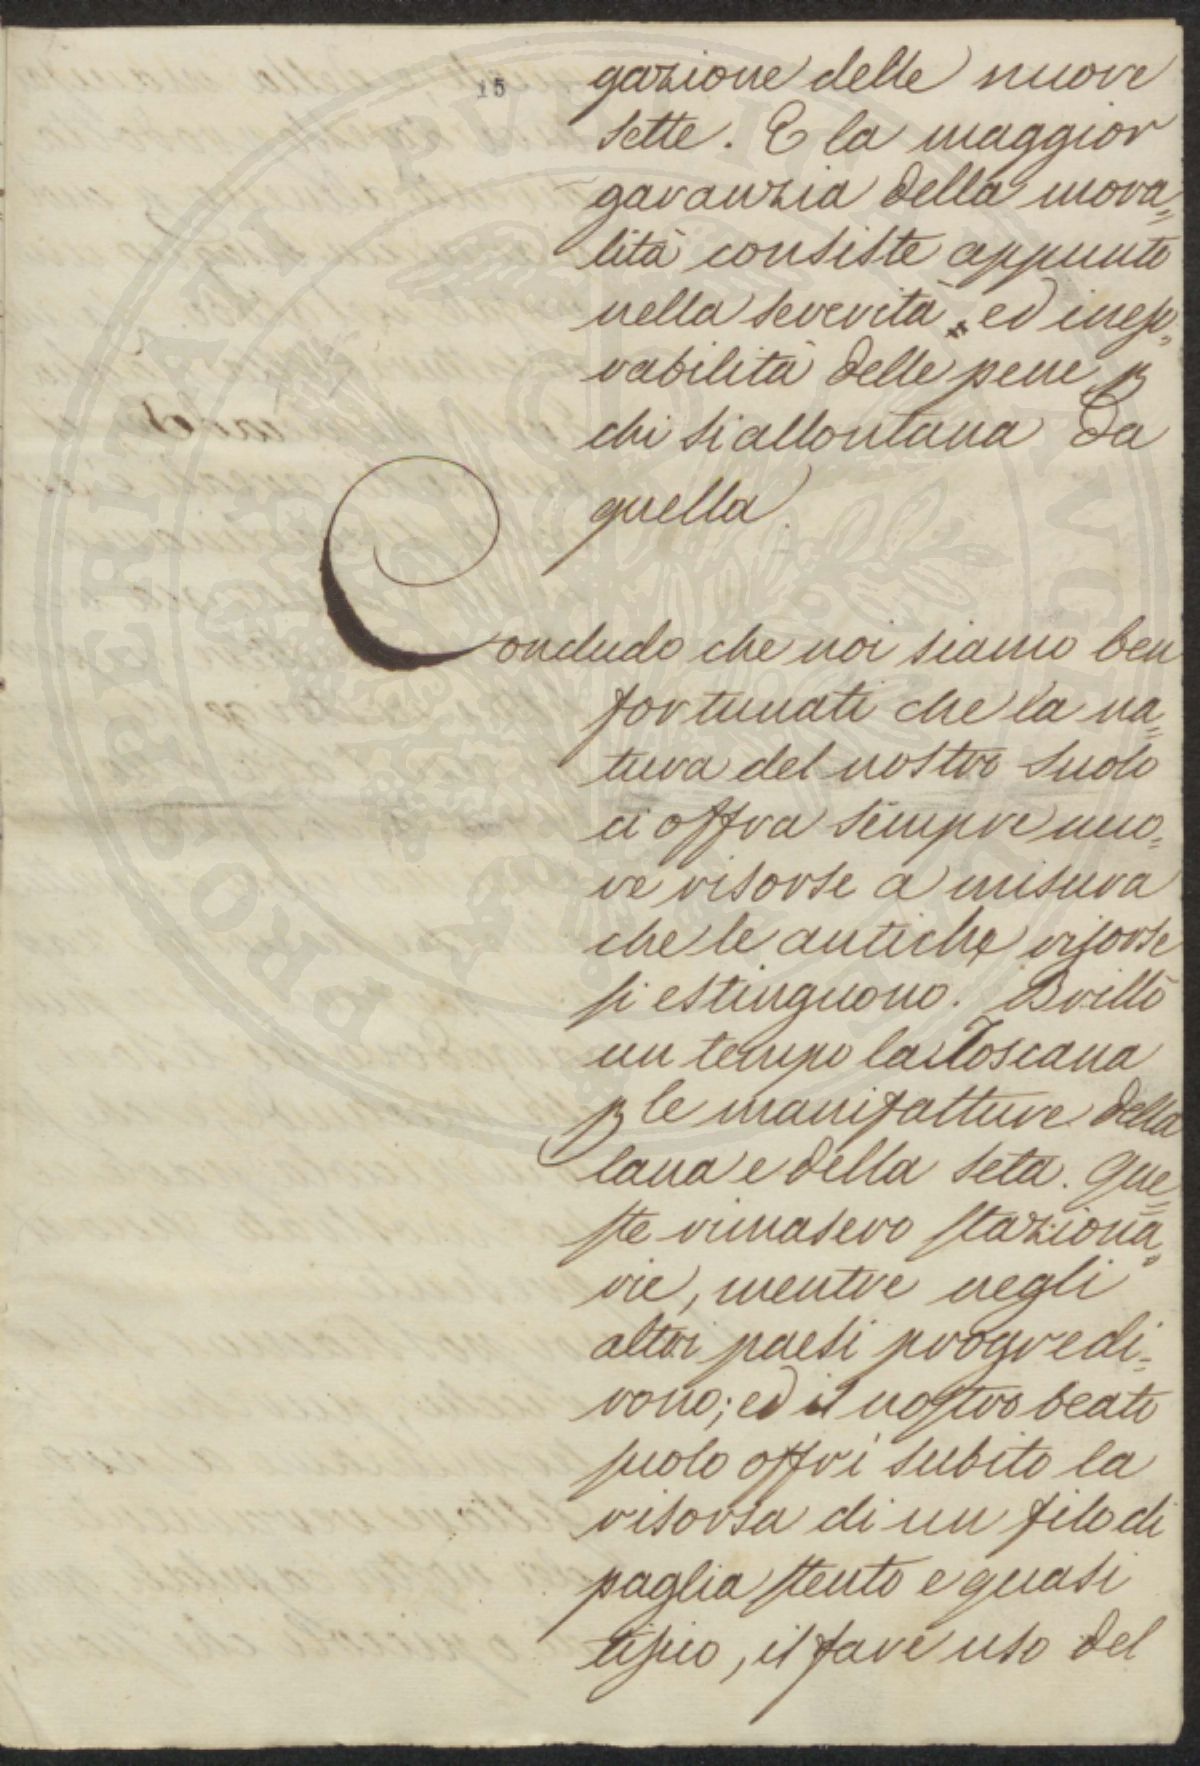 15
gazione delle nuove
sette. E la maggior
garanzia della mora=
lità consiste appunto
nella severità, ed ineso=
rabilità delle pene p
chi si allontana da
quella.
Concludo che noi siamo ben
fortunati che la na=
tura del nostro suolo
ci offra sempre nuo=
ve risorse a misura
che le antiche risorse
si estinguono. Brillò
un tempo la Toscana
p le manifatture della
lana e della seta. Que=
ste rimasero staziona=
rie, mentre negli
altri paesi progredi=
rono; ed il nostro beato
suolo offrì subito la
risorsa di un filo di
paglia stento e quasi
tisico, il fare uso del
PROSPERITATI PVBLICAE AVGENDAE